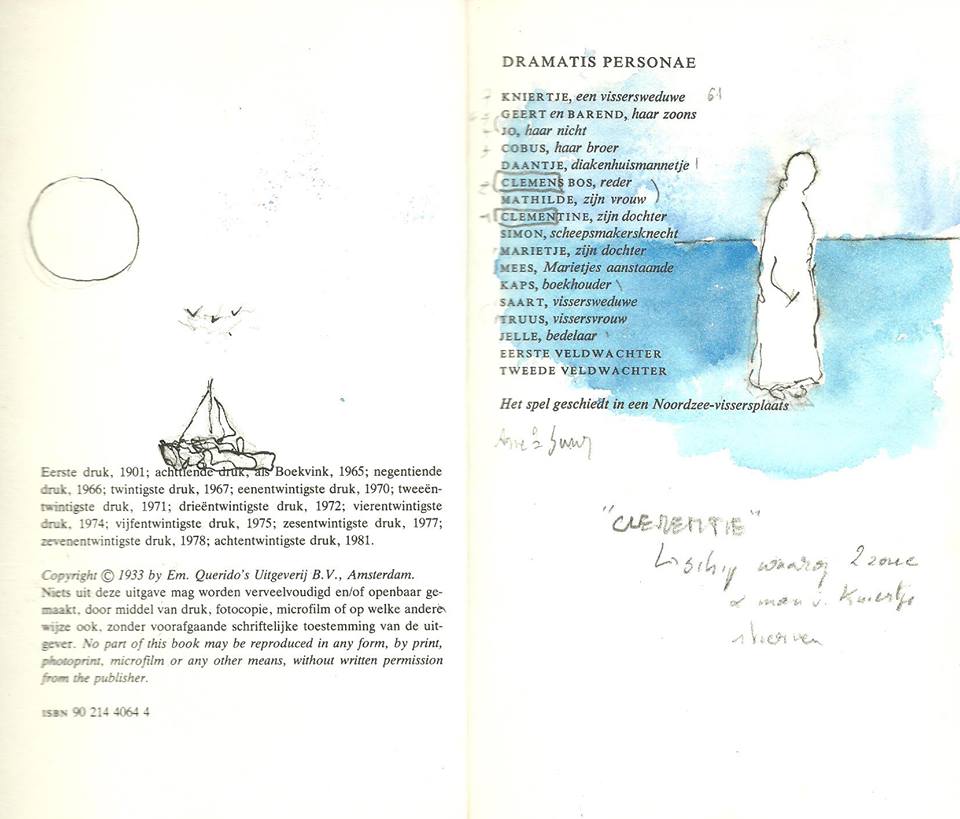 Eerste druk, 1901; achttiende druk, als Boekvink, 1965; negentiende
druk, 1966; twintigste druk, 1967; eenentwintigste druk, 1970; tweeën-
twintigste druk, 1971; drieëntwintigste druk, 1972; vierentwintigste
druk, 1974; vijfentwintigste druk, 1975; zesentwintigste druk, 1977;
zevenentwintigste druk, 1978; achtentwintigste druk, 1981.
Copyright © 1933 by Em. Querido's Uitgeverij B.V., Amsterdam.
Niets uit deze uitgave mag worden verveelvoudigd en/of openbaar ge-
maakt, door middel van druk, fotocopie, microfilm of op welke andere
wijze ook, zonder voorafgaande schriftelijke toestemming van de uit-
gever. No part of this book may be reproduced in any form, by print,
photoprint, microfilm or any other means, without written permission
from the publisher.
ISBN 90 214 4064 4
DRAMATIS PERSONAE
KNIERTJE, een vissersweduwe 61
GEERT en BAREND, haar zoons
JO, haar nicht
COBUS, haar broer
DAANTJE, diakenhuismannetje
CLEMENS BOS, reder
MATHILDE, zijn vrouw
CLEMENTINE, zijn dochter
SIMON, scheepsmakersknecht
MARIETJE, zijn dochter
MEES, Marietjes aanstaande
KAPS, boekhouder
SAART, vissersweduwe
TRUUS, vissersvrouw
JELLE, bedelaar
EERSTE VELDWACHTER
TWEEDE VELDWACHTER
Het spel geschiedt in een Noordzee-vissersplaats
schip waarop 2 zone
& man v. Kniertje
stierven